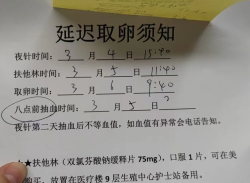 延迟取卵须知
夜针时间：3 月 4 日 15:40
扶他林时间：3 月 5 日 11:40
取卵时间：3 月 6 日 9:40
八点前抽血时间：3 月 5 日？
夜针第二天抽血后不等血值，如血值有异常会电话告知。
★扶他林（双氯芬酸钠缓释片 75mg），口服 1 片，可在美
购买，放置在医疗楼 9 层生殖中心护士站备用。